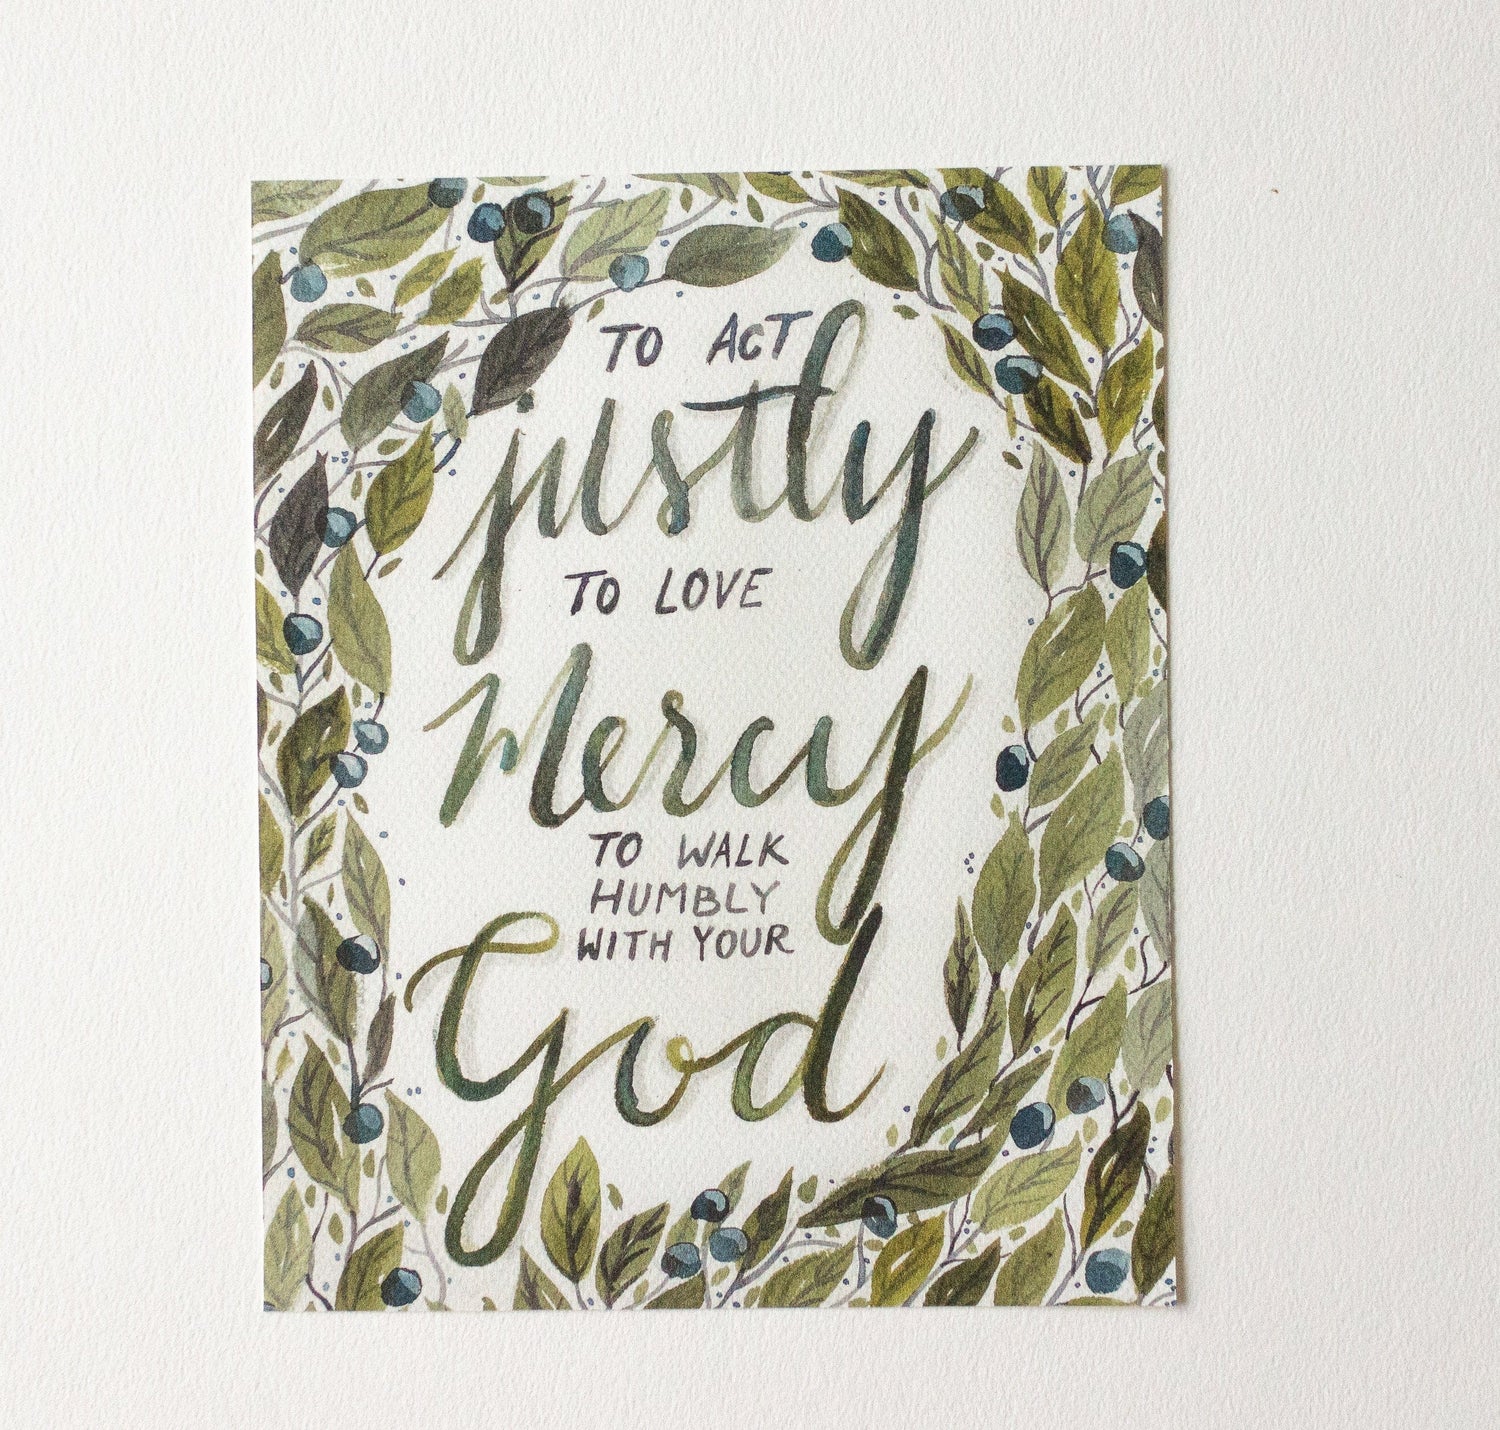 TO ACT
justly
TO LOVE
Mercy
TO WALK
HUMBLY
WITH YOUR
God